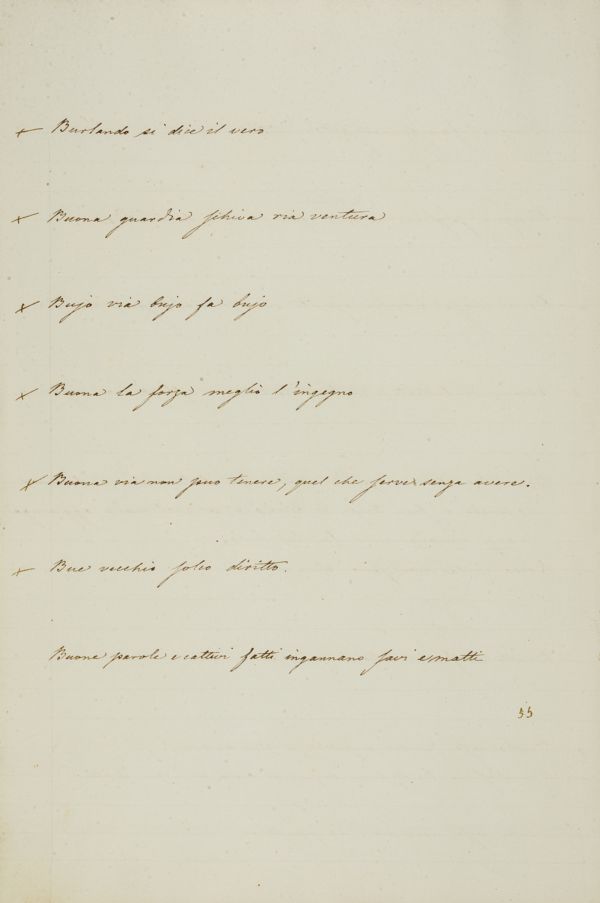 × Burlando si dice il vero
× Buona guardia schiva ria ventura
× Bujo via bujo fa bujo
× Buona la forza meglio l'ingegno
× Buona via non puo tenere, quel che serve senza avere.
× Bue vecchio solco diritto.
Buone parole e cattivi fatti ingannano savi e matti
33